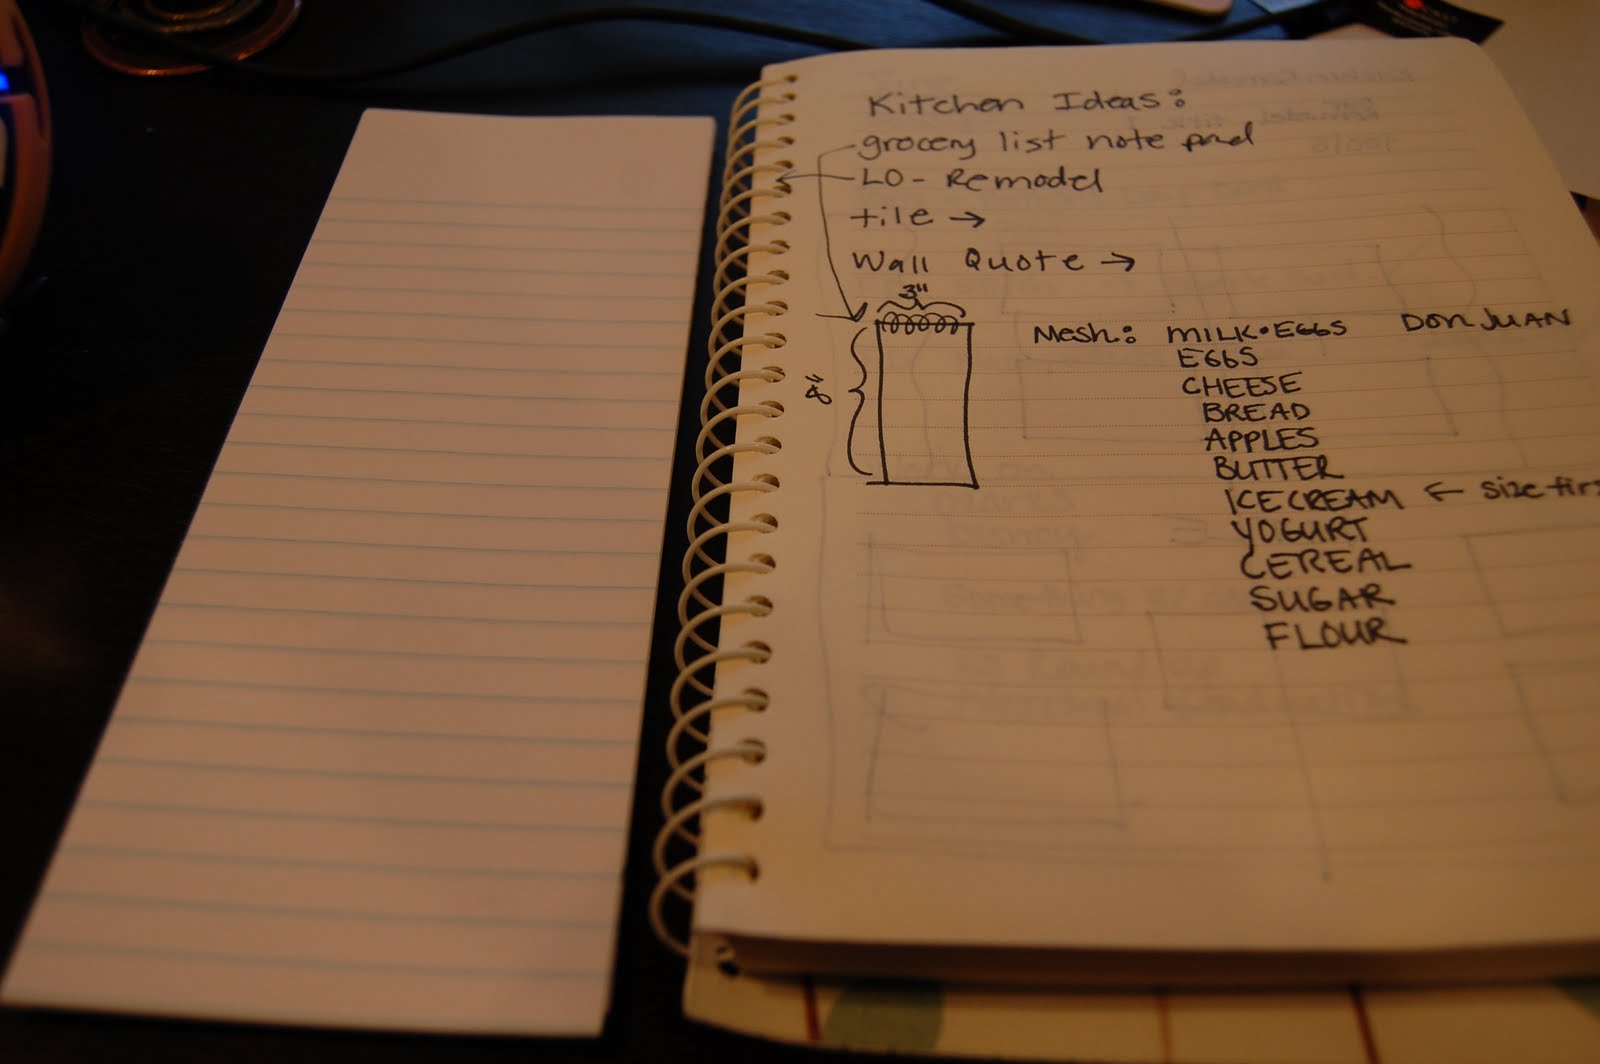 Kitchen Ideas:
grocery list note pad
LO - Remodel
tile →
Wall Quote →
3"
8"
Mesh: MILK • EGGS DON JUAN
EGGS
CHEESE
BREAD
APPLES
BUTTER
ICE CREAM ← size firs
YOGURT
CEREAL
SUGAR
FLOUR